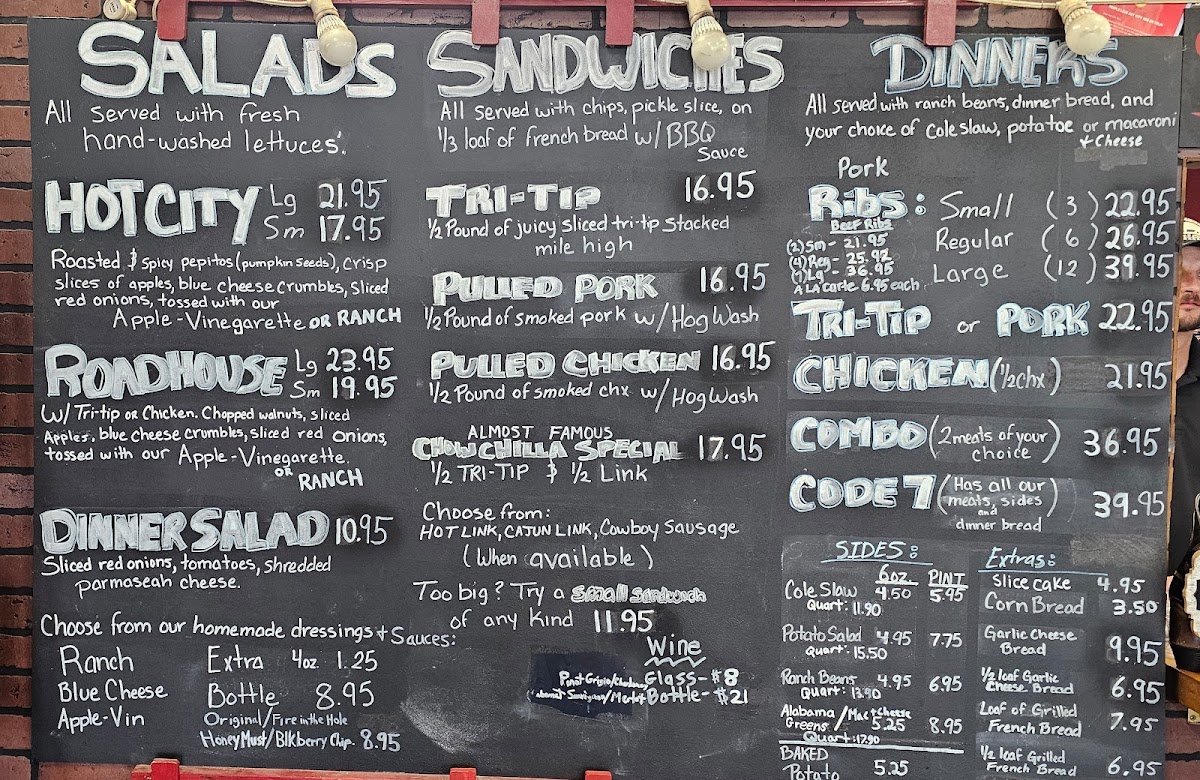 SALADS
All served with fresh
hand-washed lettuces'.
HOT CITY Lg 21.95
Sm 17.95
Roasted & spicy pepitos (pumpkin seeds), crisp
slices of apples, blue cheese crumbles, sliced
red onions, tossed with our
Apple-Vinegarette OR RANCH
ROADHOUSE Lg 23.95
Sm 19.95
W/ Tri-tip OR Chicken. Chopped walnuts, sliced
Apples, blue cheese crumbles, sliced red onions,
tossed with our Apple-Vinegarette.
OR RANCH
DINNER SALAD 10.95
Sliced red onions, tomatoes, shredded
parmaseah cheese.
Choose from our homemade dressings + Sauces:
Ranch Extra 4oz. 1.25
Blue Cheese Bottle 8.95
Apple-Vin Original/Fire in the Hole
Honey Must/Blkberry Chip. 8.95
SANDWICHES
All served with chips, pickle slice, on
1/3 loaf of french bread w/ BBQ
Sauce
TRI-TIP 16.95
1/2 Pound of juicy sliced tri-tip stacked
mile high
PULLED PORK 16.95
1/2 Pound of smoked pork w/ Hog Wash
PULLED CHICKEN 16.95
1/2 Pound of smoked chx w/ Hog Wash
ALMOST FAMOUS
CHOWCHILLA SPECIAL 17.95
1/2 TRI-TIP & 1/2 Link
Choose from:
HOT LINK, CAJUN LINK, Cowboy Sausage
(When available)
Too big? Try a small sandwich
of any Kind 11.95
Wine
Pinot Grigio/ Glass-$8
Cabernet Sauvignon/Merlot Bottle-$21
DINNERS
All served with ranch beans, dinner bread, and
your choice of Cole slaw, potatoe or macaroni
+ Cheese
Pork
Ribs: Small (3) 22.95
Regular (6) 26.95
Large (12) 39.95
Beef Ribs
(2) Sm- 21.95
(4) Reg- 25.92
(7) Lg- 36.95
A La carte 6.95 each
TRI-TIP or PORK 22.95
CHICKEN (1/2 chx) 21.95
COMBO (2 meats of your
choice) 36.95
CODE 7 (Has all our
meats, sides
and
dinner bread) 39.95
SIDES:
6oz. PINT
Cole Slaw 4.50 5.95
Quart: 11.90
Potato Salad 4.95 7.75
Quart: 15.50
Ranch Beans 4.95 6.95
Quart: 13.90
Alabama Greens / Mac + Cheese 5.25 8.95
Quart: 17.90
BAKED
Potato 5.25
Extras:
Slice cake 4.95
Corn Bread 3.50
Garlic Cheese
Bread 9.95
1/2 loaf Garlic
Cheese Bread 6.95
Loaf of Grilled
French Bread 7.95
1/2 loaf Grilled
French Bread 6.95